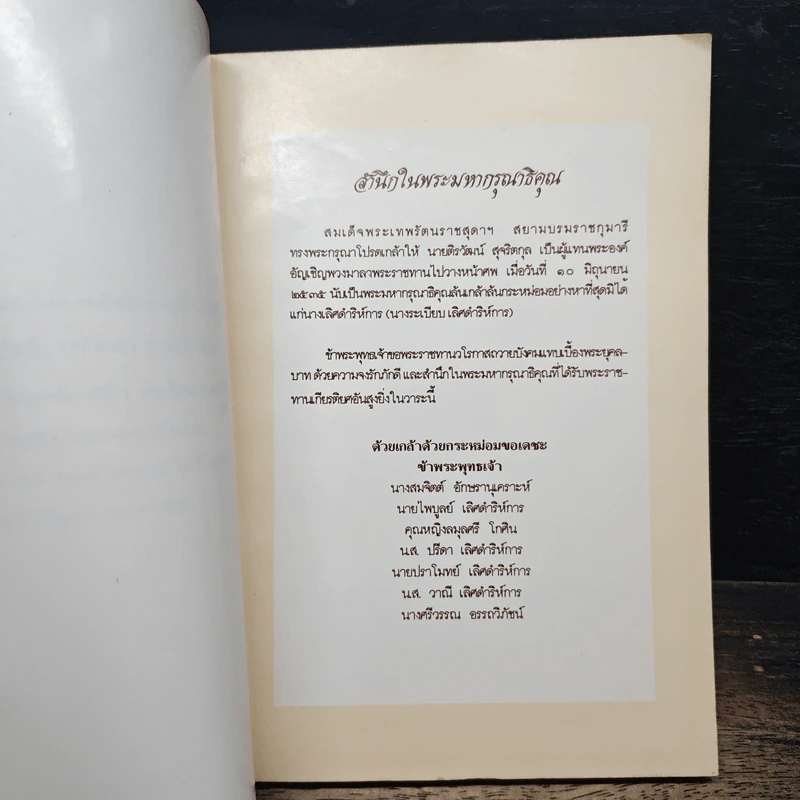 สำนึกในพระมหากรุณาธิคุณ
สมเด็จพระเทพรัตนราชสุดาฯ สยามบรมราชกุมารี
ทรงพระกรุณาโปรดเกล้าให้ นายติรวัฒน์ สุจริตกุล เป็นผู้แทนพระองค์
อัญเชิญพวงมาลาพระราชทานไปวางหน้าศพ เมื่อวันที่ ๑๐ มิถุนายน
๒๕๓๕ นับเป็นพระมหากรุณาธิคุณล้นเกล้าล้นกระหม่อมอย่างหาที่สุดมิได้
แก่นางเลิศดำริห์การ (นางระเบียบ เลิศดำริห์การ)
ข้าพระพุทธเจ้าขอพระราชทานวโรกาสถวายบังคมแทบเบื้องพระยุคล-
บาท ด้วยความจงรักภักดี และสำนึกในพระมหากรุณาธิคุณที่ได้รับพระราช-
ทานเกียรติยศอันสูงยิ่งในวาระนี้
ด้วยเกล้าด้วยกระหม่อมขอเดชะ
ข้าพระพุทธเจ้า
นางสมจิตต์ อักษรานุเคราะห์
นายไพบูลย์ เลิศดำริห์การ
คุณหญิงลมุลศรี โกศิน
น.ส. ปรีดา เลิศดำริห์การ
นายปราโมทย์ เลิศดำริห์การ
น.ส. วาณี เลิศดำริห์การ
นางศรีวรรณ อรรถวิภัชน์